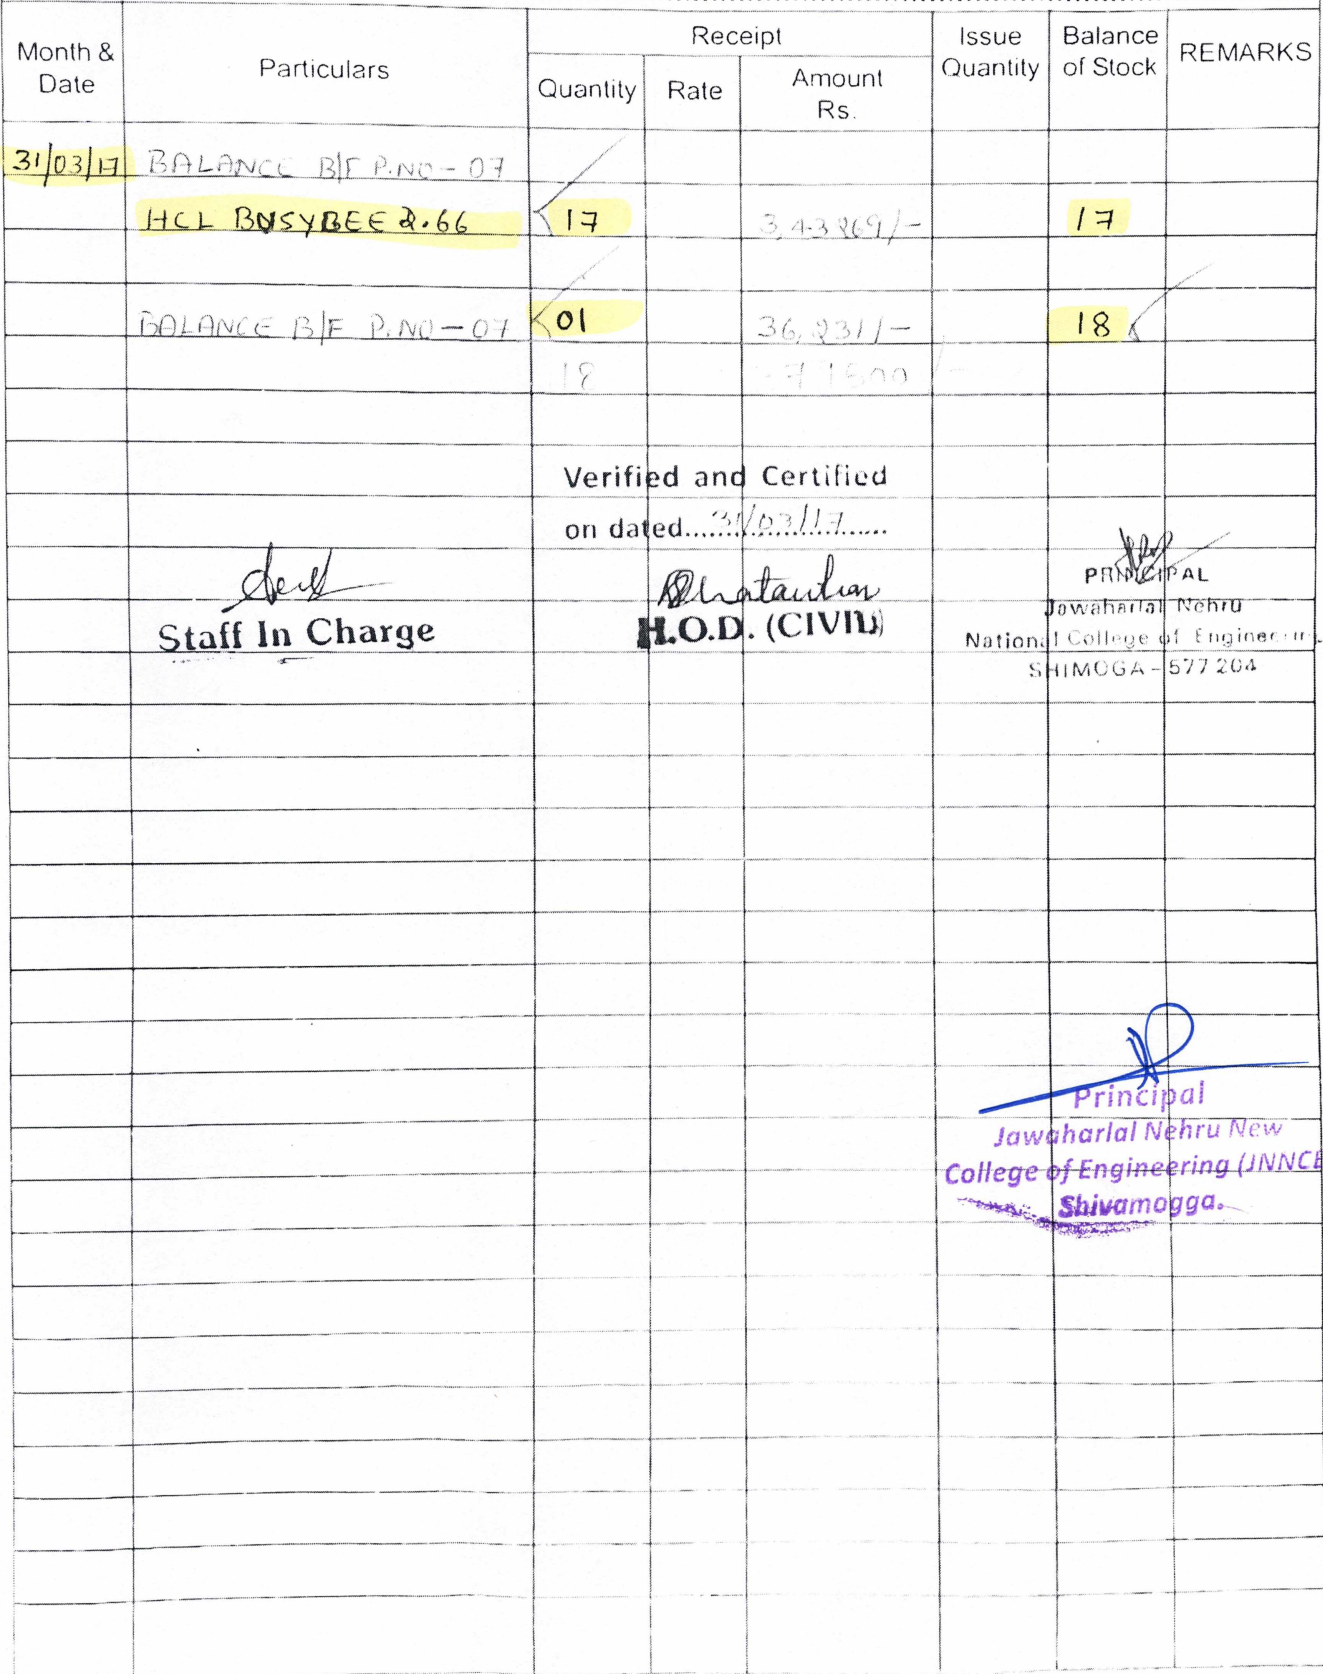 Month & Date Particulars Receipt Issue Quantity Balance of Stock REMARKS
Quantity Rate Amount Rs.
31/03/17 BALANCE B/F P.NO - 07
HCL BUSYBEE 2.66 17 3,43269/- 17
BALANCE B/F P.NO - 07 01 36,231/- 18
18
Verified and Certified
on dated 31/03/17
Staff In Charge
H.O.D. (CIVIL)
PRINCIPAL
Jawaharlal Nehru
National College of Engineering
SHIMOGA - 577 204
Principal
Jawaharlal Nehru New
College of Engineering (JNNCE
Shivamogga.